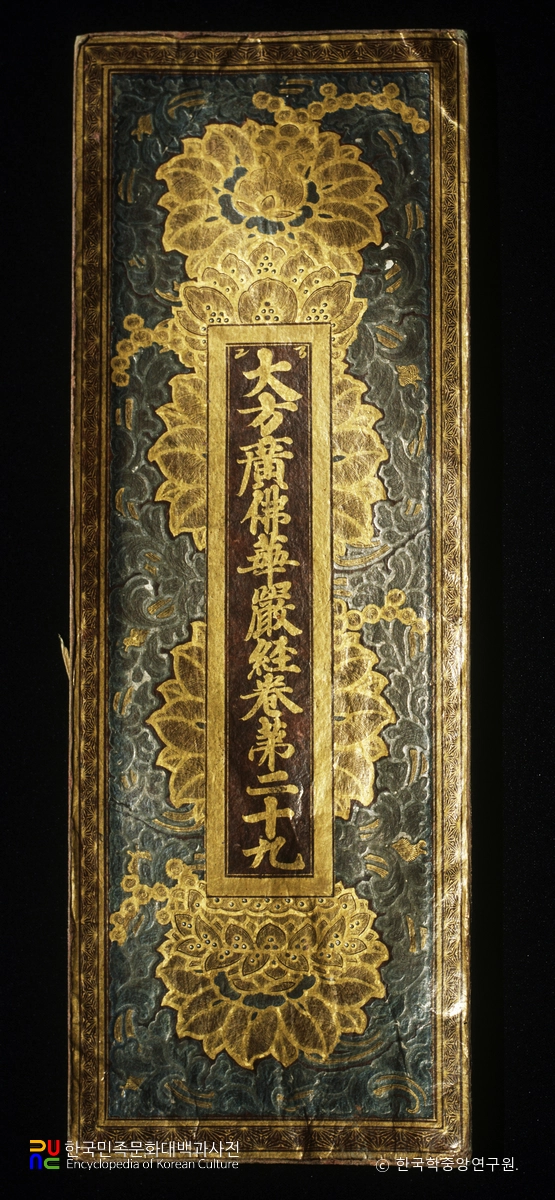 大方廣佛華嚴經卷第二十九
한국민족문화대백과사전
Encyclopedia of Korean Culture
© 한국학중앙연구원.